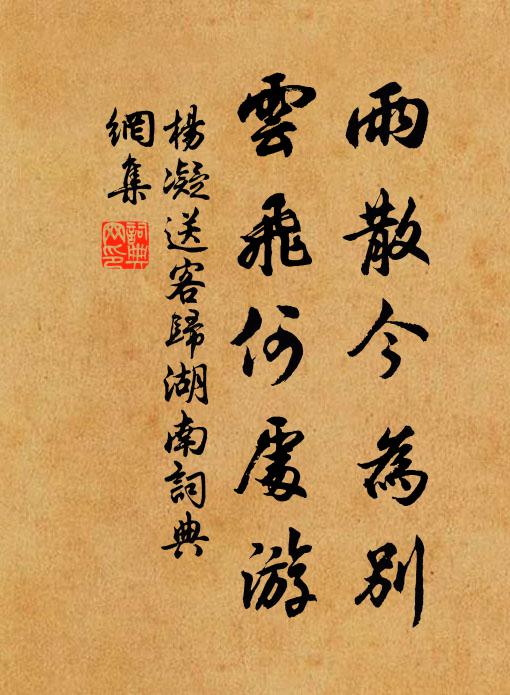 雨散今為别
雲飛何處游
楊凝送客歸湖南詞典
網集
詞典
网印